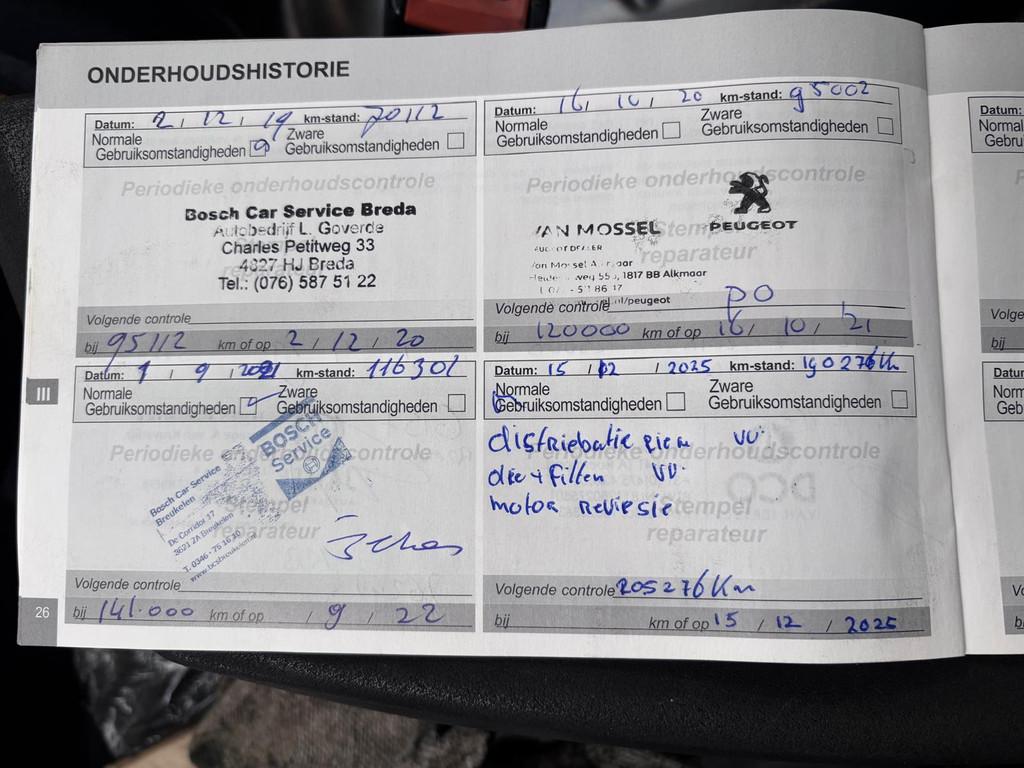 ONDERHOUDSHISTORIE
Datum: 2 / 12 / 19 km-stand: 70112
Normale Gebruiksomstandigheden
Zware Gebruiksomstandigheden
Periodieke onderhoudscontrole
Bosch Car Service Breda
Autobedrijf L. Goverde
Charles Petitweg 33
4827 HJ Breda
Tel.: (076) 587 51 22
Volgende controle
bij 95112 km of op 2 / 12 / 20
Datum: 16 / 10 / 20 km-stand: 95002
Normale Gebruiksomstandigheden
Zware Gebruiksomstandigheden
Periodieke onderhoudscontrole
Stempel
reparateur
VAN MOSSEL
PEUGEOT
1817 BB Alkmaar
.nl/peugeot
Volgende controle PO
bij 120000 km of op 16 / 10 / 21
Datum: 1 / 9 / 2021 km-stand: 116301
Normale Gebruiksomstandigheden
Zware Gebruiksomstandigheden
Periodieke onderhoudscontrole
Stempel
reparateur
BOSCH
Service
Bosch Car Service
Breukelen
De Corridor 17
3621 ZA Breukelen
Volgende controle
bij 141.000 km of op / 9 / 22
Datum: 15 / 12 / 2025 km-stand: 190276Km
Normale Gebruiksomstandigheden
Zware Gebruiksomstandigheden
Periodieke onderhoudscontrole
Stempel
reparateur
distriebatie riem VV.
olie + filter VV.
motor reviesie
Volgende controle 205276Km
bij km of op 15 / 12 / 2025
III
26
Datum: